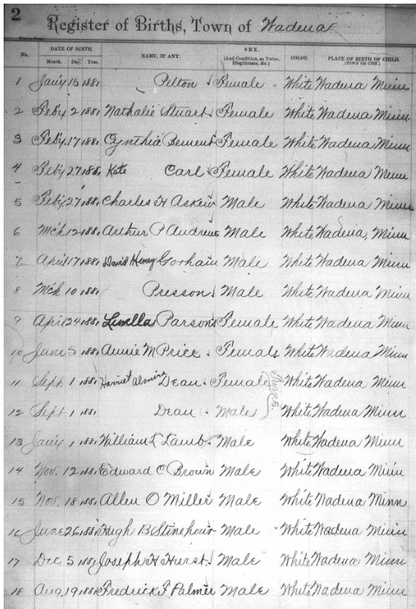 2
Register of Births, Town of Wadena
No. DATE OF BIRTH. NAME, IF ANY. SEX. COLOR. PLACE OF BIRTH.
Month. Day. Year. (And Condition, as Twins, Illegitimate, &c.) (TOWN OR CITY.)
1 Jany 15 1881 Pelton Female White Wadena Minn
2 Feby 2 1881 Nathalie Stuart Female White Wadena Minn
3 Feby 17 1881 Cynthia Bement Female White Wadena Minn
4 Feby 27 1881 Kate Carl Female White Wadena Minn
5 Feby 27 1881 Charles H Askew Male White Wadena Minn
6 Mch 12 1881 Arthur P Andrews Male White Wadena Minn
7 April 17 1881 David Henry Gorham Male White Wadena Minn
8 Mch 10 1881 Presson Male White Wadena Minn
9 April 24 1881 Luvella Parsons Female White Wadena Minn
10 June 5 1881 Annie M Price Female White Wadena Minn
11 Sept 1 1881 Harriet Almira Dean Female White Wadena Minn
12 Sept 1 1881 Dean Male White Wadena Minn
13 Jany 1 1881 William L Lamb Male White Wadena Minn
14 Nov. 12 1881 Edward C Brown Male White Wadena Minn
15 Nov. 18 1881 Allen O Miller Male White Wadena Minn
16 June 26 1881 Hugh B Male White Wadena Minn
17 Dec 5 1881 Joseph H Hurst Male White Wadena Minn
18 Aug 19 1881 Fredrick F Palmer Male White Wadena Minn